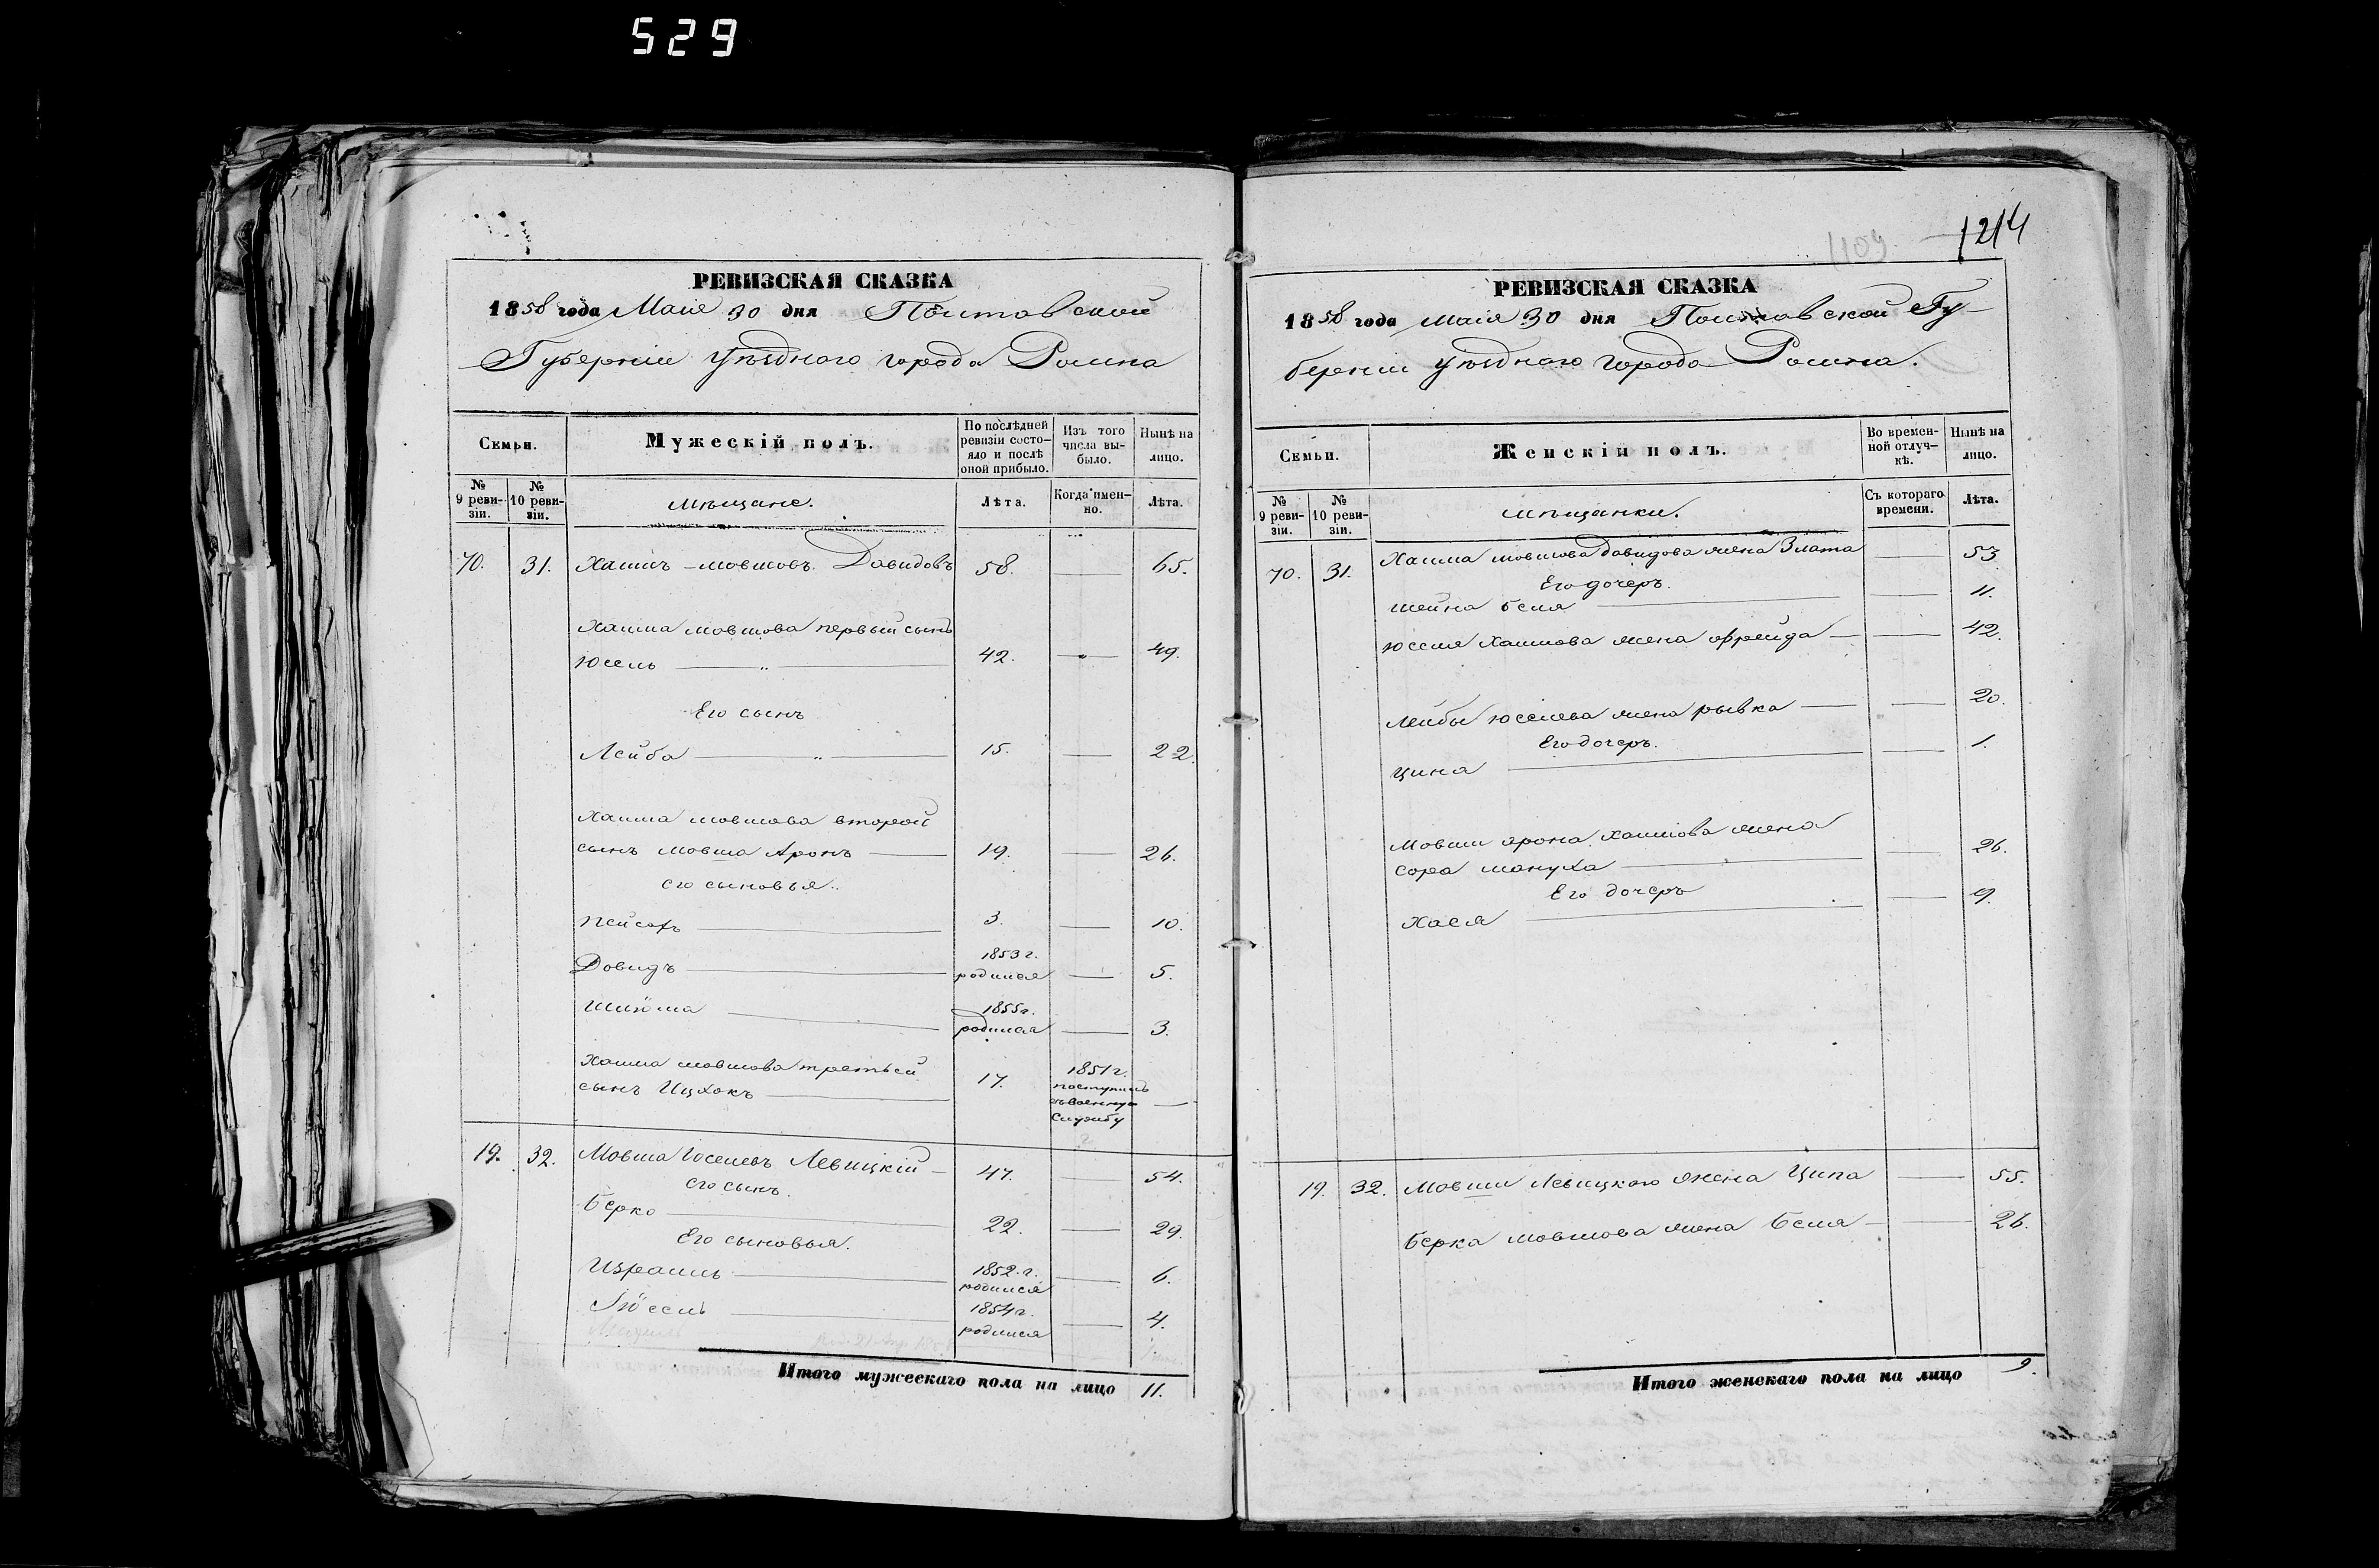 529
РЕВИЗСКАЯ СКАЗКА
1858 года Маія 30 дня Полтавской
Губерніи Уѣзднаго города Ромна
Семьи.
Мужескій полъ.
По послѣдней ревизіи состо-
яло и послѣ
оной прибыло.
Изъ того
числа вы-
было.
Нынѣ на
лицо.
№
9 реви-
зіи.
№
10 реви-
зіи.
мѣщане.
Лѣта.
Когда имен-
но.
Лѣта.
70. 31. Хаимъ мовшовъ Давидовъ 58. 65.
Хаима мовшова первый сынъ
Юсель 42. 49.
Его сынъ
Лейба 15. 22.
Хаима мовшова второй
сынъ мовша Аронъ 19. 26.
его сыновья.
Пейсахъ 3. 10.
1853 г.
Довидъ родился 5.
Шлёма 1855 г.
родился 3.
Хаима мовшова третьей
сынъ Ицхокъ 17. 1851 г.
поступилъ
въ военную
службу
19. 32. Мовша Іоселевъ Левицкій 47. 54.
его сынъ.
Берко 22. 29.
Его сыновья.
Израиль 1852. г.
родился 6.
Іосель 1854 г.
родился 4.
Итого мужескаго пола на лицо 11.
1109
1214
РЕВИЗСКАЯ СКАЗКА
1858 года Маія 30 дня Полтавской Гу-
берніи уѣзднаго города Ромна.
Семьи.
Женскій полъ.
Во времен-
ной отлуч-
кѣ.
Нынѣ на
лицо.
№
9 реви-
зіи.
№
10 реви-
зіи.
мѣщанки.
Съ котораго
времени.
Лѣта.
70. 31. Хаима мовшова Давидова жена Злата 53
Его дочеръ.
шейна бейля 11.
Юселя Хаимова жена Фрейда 42.
Лейбы юселева жена рывка 20.
Его дочеръ.
Цина 1.
Мовши арона Хаимова жена
сора мануха 26.
Его дочеръ
Хася 9.
19. 32. Мовши Левицкаго жена Ципа 55.
Берка мовшова жена Беля 26.
Итого женскаго пола на лицо 9.